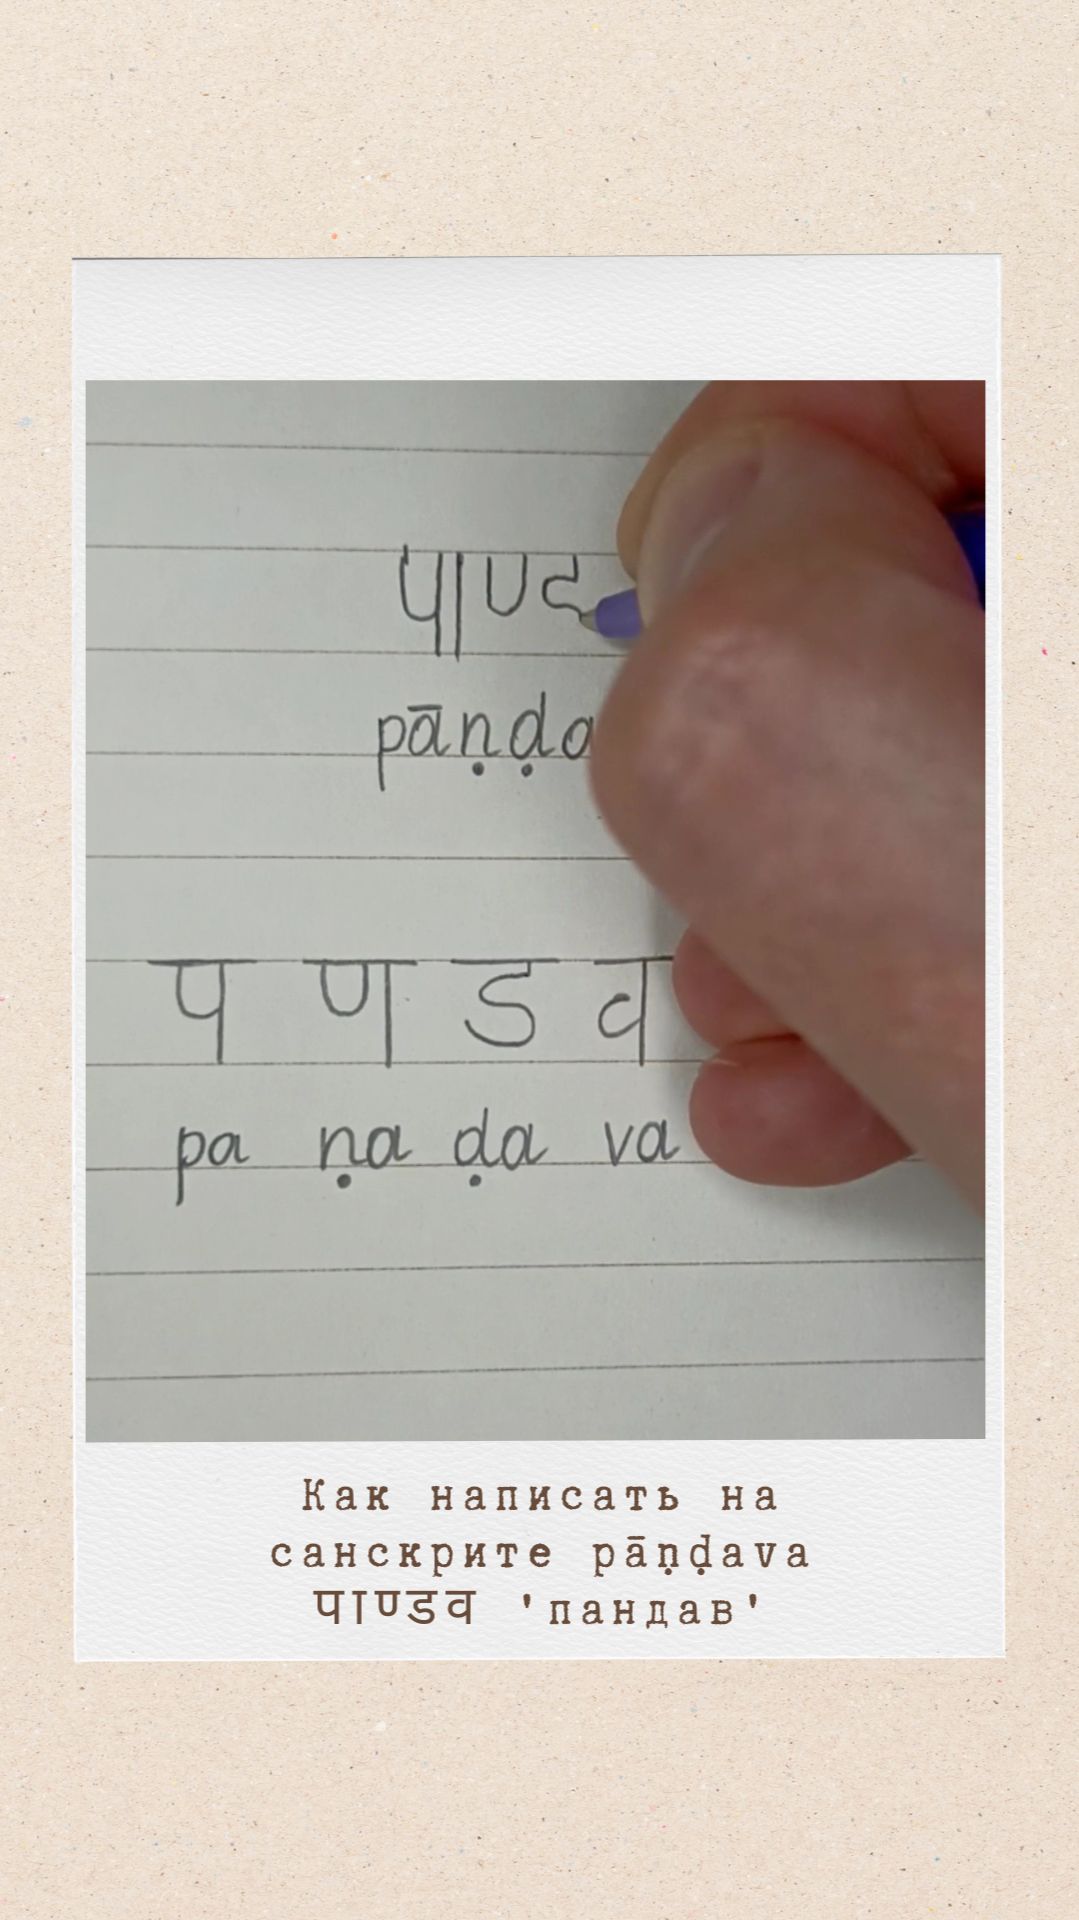 पाण्ड
pāṇḍa
प ण ड व
pa ṇa ḍa va
Как написать на
санскрите pāṇḍava
पाण्डव 'пандав'